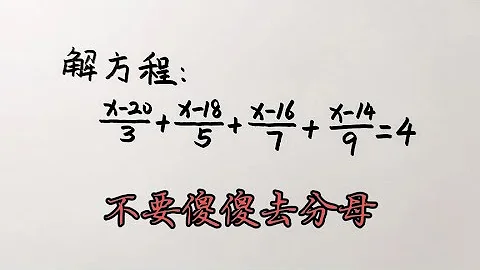 解方程:
x-20/3 + x-18/5 + x-16/7 + x-14/9 = 4
不要傻傻去分母